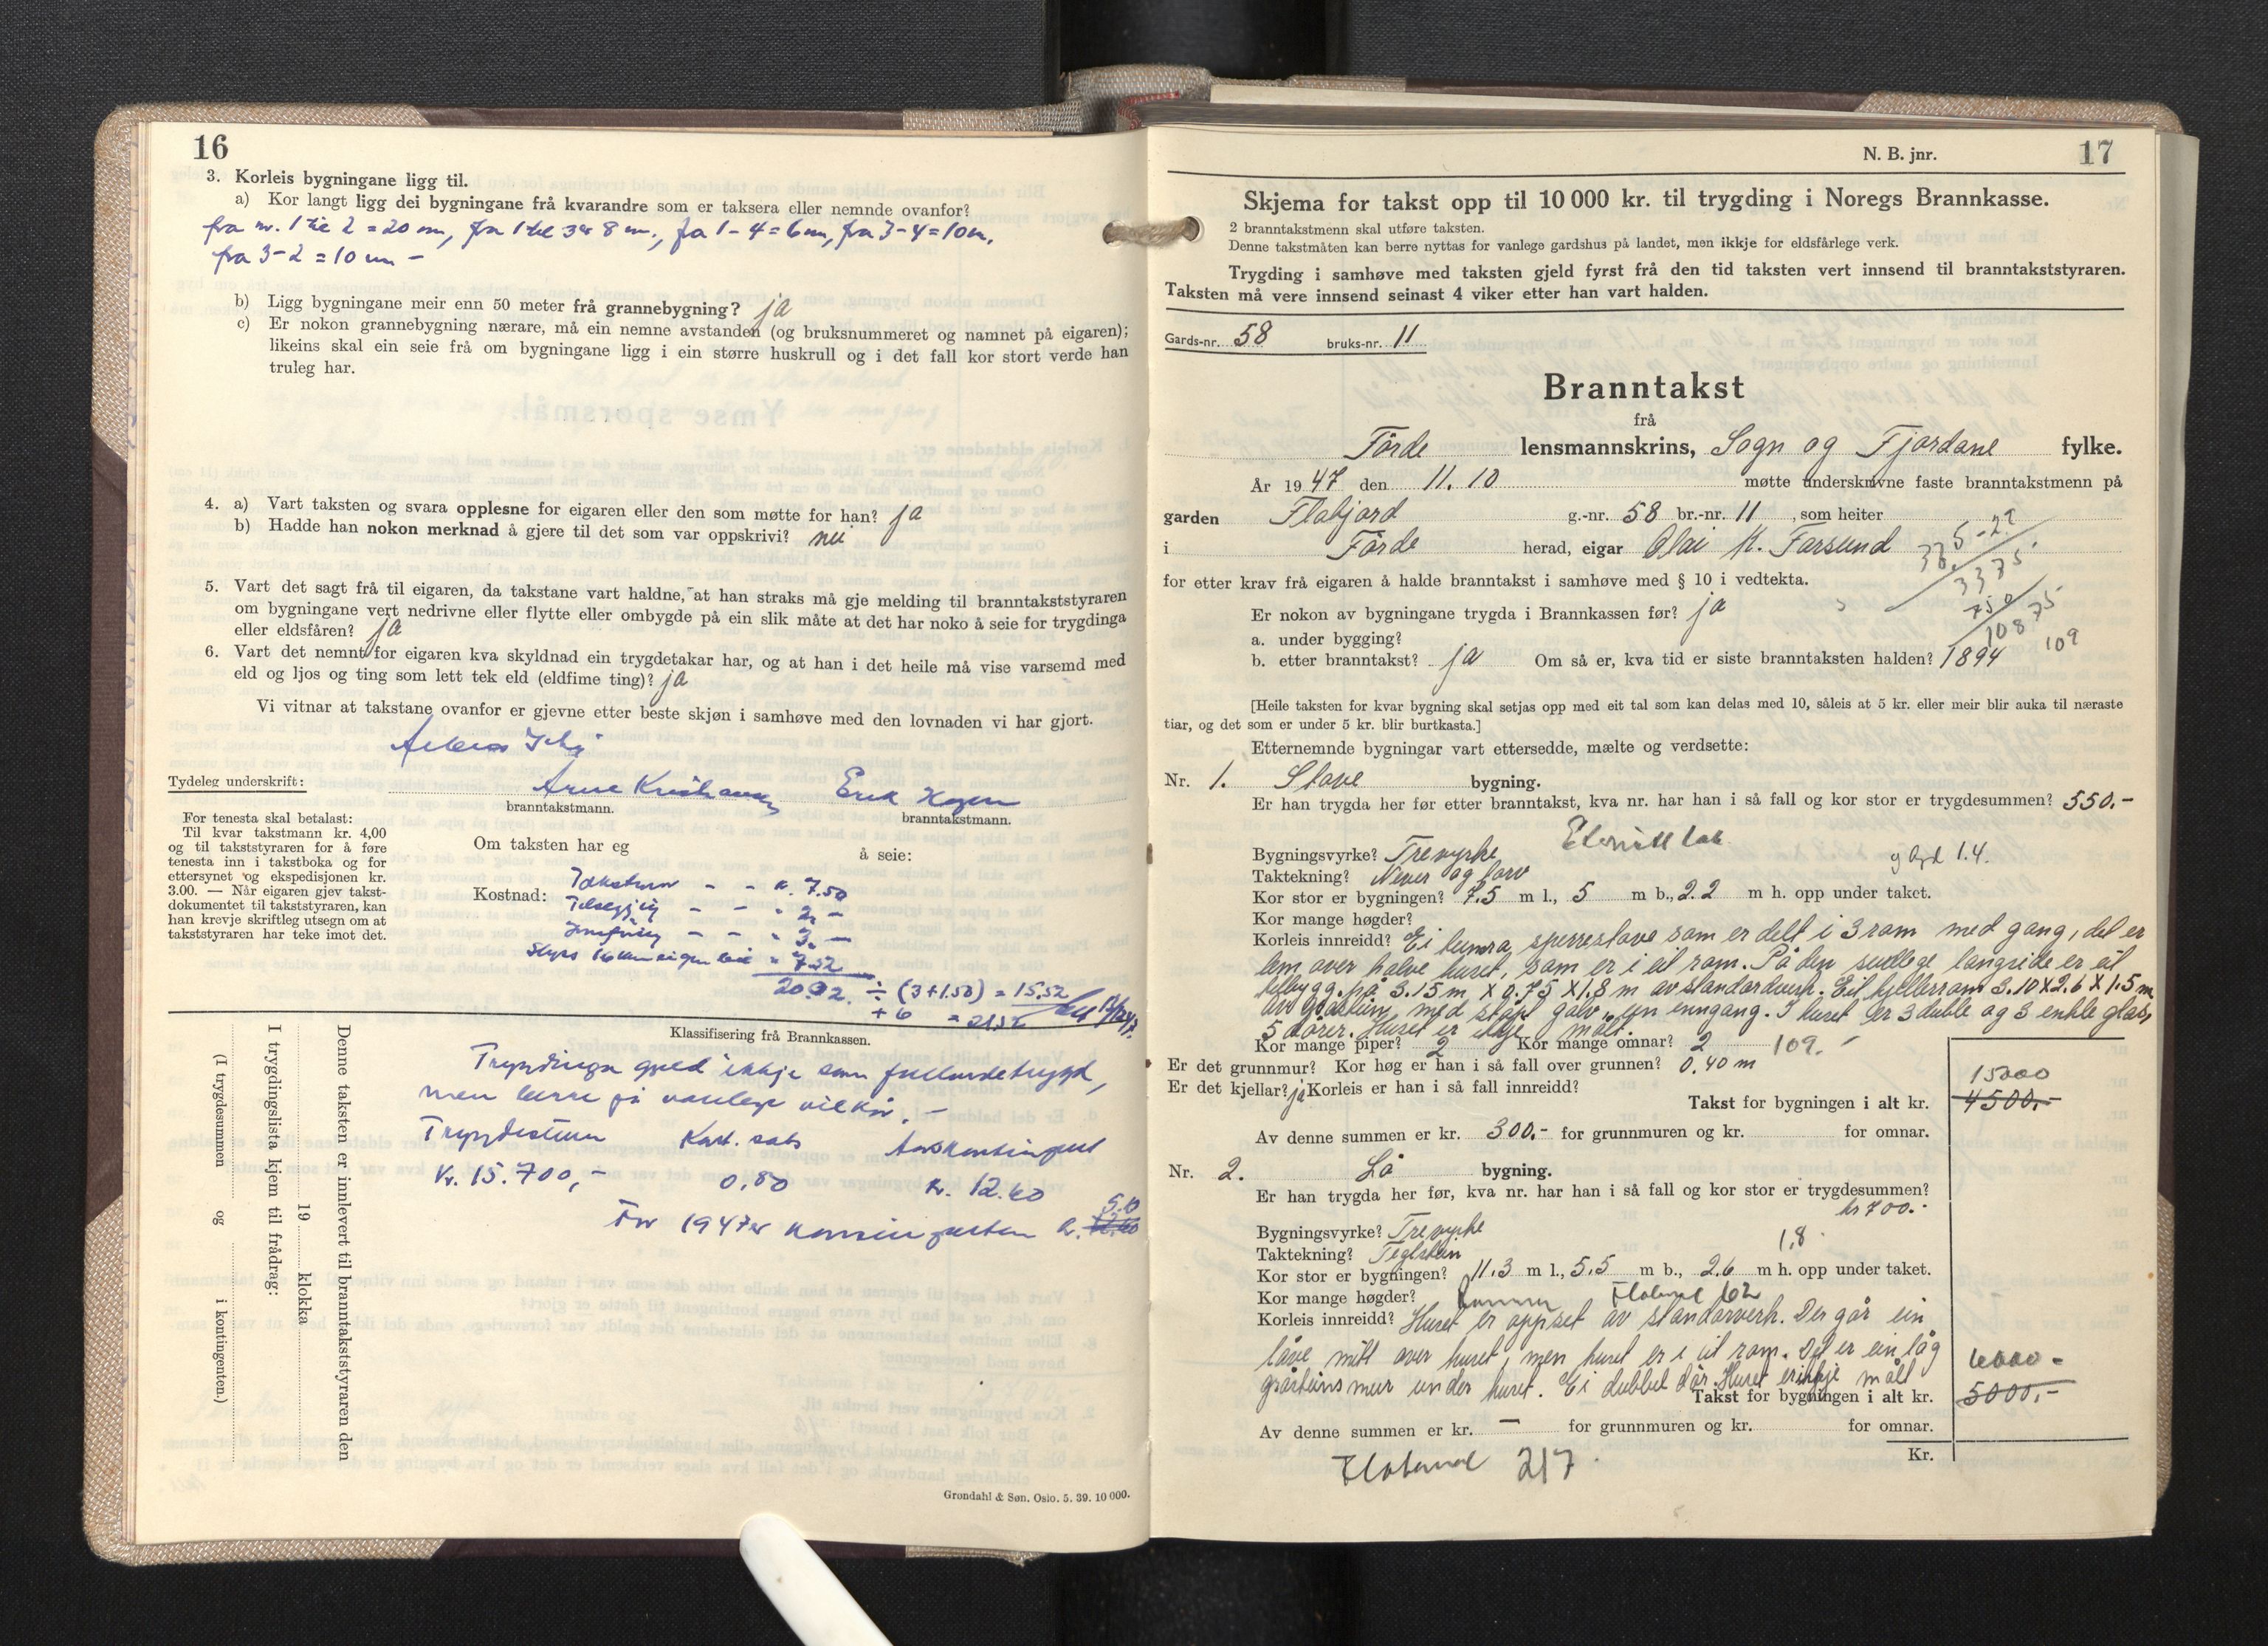 16
3. Korleis bygningane ligg til.
a) Kor langt ligg dei bygningane frå kvarandre som er taksera eller nemnde ovanfor?
fra nr. 1 til 2 = 20 m, fra 1 til 3 er 8 m., fra 1 - 4 = 6 m, fra 3 - 4 = 10 m.
fra 3 - 2 = 10 m -
b) Ligg bygningane meir enn 50 meter frå grannebygning? ja
c) Er nokon grannebygning nærare, må ein nemne avstanden (og bruksnummeret og namnet på eigaren);
likeins skal ein seie frå om bygningane ligg i ein større huskrull og i det fall kor stort verde han
truleg har.
4. a) Vart taksten og svara opplesne for eigaren eller den som møtte for han? ja
b) Hadde han nokon merknad å gjere til det som var oppskrivi? nei
5. Vart det sagt frå til eigaren, da takstane vart haldne, at han straks må gje melding til branntakststyraren
om bygningane vert nedrivne eller flytte eller ombygde på ein slik måte at det har noko å seie for trygdinga
eller eldsfåren? ja
6. Vart det nemnt for eigaren kva skyldnad ein trygdetakar har, og at han i det heile må vise varsemd med
eld og ljos og ting som lett tek eld (eldfime ting)? ja
Vi vitnar at takstane ovanfor er gjevne etter beste skjøn i samhøve med den lovnaden vi har gjort.
Tydeleg underskrift:
Arne Erik
branntakstmann. branntakstmann.
For tenesta skal betalast:
Til kvar takstmann kr. 4,00
og til takststyraren for å føre
tenesta inn i takstboka og for
ettersynet og ekspedisjonen kr.
3.00. — Når eigaren gjev takst-
dokumentet til takststyraren, kan
han krevje skriftleg utsegn om at
takststyraren har teke imot det.
Om taksten har eg å seie:
Kostnad:
kr. 7.50
" 2. -
" 3. -
" 7.52
20.02 ÷ (3 + 1.50) = 15.52
+ 6 = 21.52
Klassifisering frå Brannkassen.
Trygdinga gjeld ikkje som fullverdetrygd,
men berre på vanlege vilkår. -
Trygdesum Kont. sats Årskontingent
Kr. 15.700,- 0,80 kr. 12.60
5.10
For 1947 er kontingenten kr. 12.60
Denne taksten er innlevert til branntakststyraren den
19 klokka
I trygdingslista kjem til frådrag:
(I trygdesummen og i kontingenten.)
Grøndahl & Søn. Oslo. 5. 39. 10 000.
N. B. jnr. 17
Skjema for takst opp til 10 000 kr. til trygding i Noregs Brannkasse.
2 branntakstmenn skal utføre taksten.
Denne takstmåten kan berre nyttas for vanlege gardshus på landet, men ikkje for eldsfårlege verk.
Trygding i samhøve med taksten gjeld fyrst frå den tid taksten vert innsend til branntakststyraren.
Taksten må vere innsend seinast 4 viker etter han vart halden.
Gards-nr. 58 bruks-nr. 11
Branntakst
frå
Förde lensmannskrins, Sogn og Fjordane fylke.
År 1947 den 11. 10 møtte underskrivne faste branntakstmenn på
garden Flabjord g.-nr. 58 br.-nr. 11, som heiter
i Förde herad, eigar Olai K. Farsund
3375
750
108 75
109
for etter krav frå eigaren å halde branntakst i samhøve med § 10 i vedtekta.
Er nokon av bygningane trygda i Brannkassen før? ja
a. under bygging?
b. etter branntakst? ja Om så er, kva tid er siste branntaksten halden? 1894
[Heile taksten for kvar bygning skal setjas opp med eit tal som kan delas med 10, såleis at 5 kr. eller meir blir auka til næraste
tiar, og det som er under 5 kr. blir burtkasta.]
Etternemnde bygningar vart ettersedde, mælte og verdsette:
Nr. 1. Stove bygning.
Er han trygda her før etter branntakst, kva nr. har han i så fall og kor stor er trygdesummen? 550.-
Bygningsvyrke? Trevyrke Eternitt tak
Taktekning? Never og torv 1.4.
Kor stor er bygningen? 7.5 m l., 5 m b., 2.2 m h. opp under taket.
Kor mange høgder?
Korleis innreidd? Ei tømra sperrestove som er delt i 3 rom med gang, det er
lem over halve huset, som er i eit rom. På den sudlege langside er eit
tilbygg på 3.15 m x 0.75 x 1.8 m av standardverk. Eit kjellarrom 3.10 x 2.6 x 1.5 m
av gråstein med støpt golv, ein inngang. I huset er 3 duble og 3 enkle glas,
5 dører. Huset er ikkje målt.
Kor mange piper? 2 Kor mange omnar? 2 109.-
Er det grunnmur? Kor høg er han i så fall over grunnen? 0.40 m
Er det kjellar? ja Korleis er han i så fall innreidd?
15000
Takst for bygningen i alt kr. 4500.-
Av denne summen er kr. 300.- for grunnmuren og kr. for omnar.
Nr. 2. Lå bygning.
Er han trygda her før, kva nr. har han i så fall og kor stor er trygdesummen?
kr 700.-
Bygningsvyrke? Trevyrke
Taktekning? Teglstein 1,8
Kor stor er bygningen? 11.3 m l., 5.5 m b., 2.6 m h. opp under taket.
Kor mange høgder?
Korleis innreidd? Huset er oppset av standarverk. Der går ein
låve mitt over huset, men huset er i eit rom. Det er ein låg
gråsteins mur under huset. Ei dubbel dør. Huset er ikkje målt
6000 -
Takst for bygningen i alt kr. 5000.-
Av denne summen er kr. — for grunnmuren og kr. for omnar.
Kr.
217